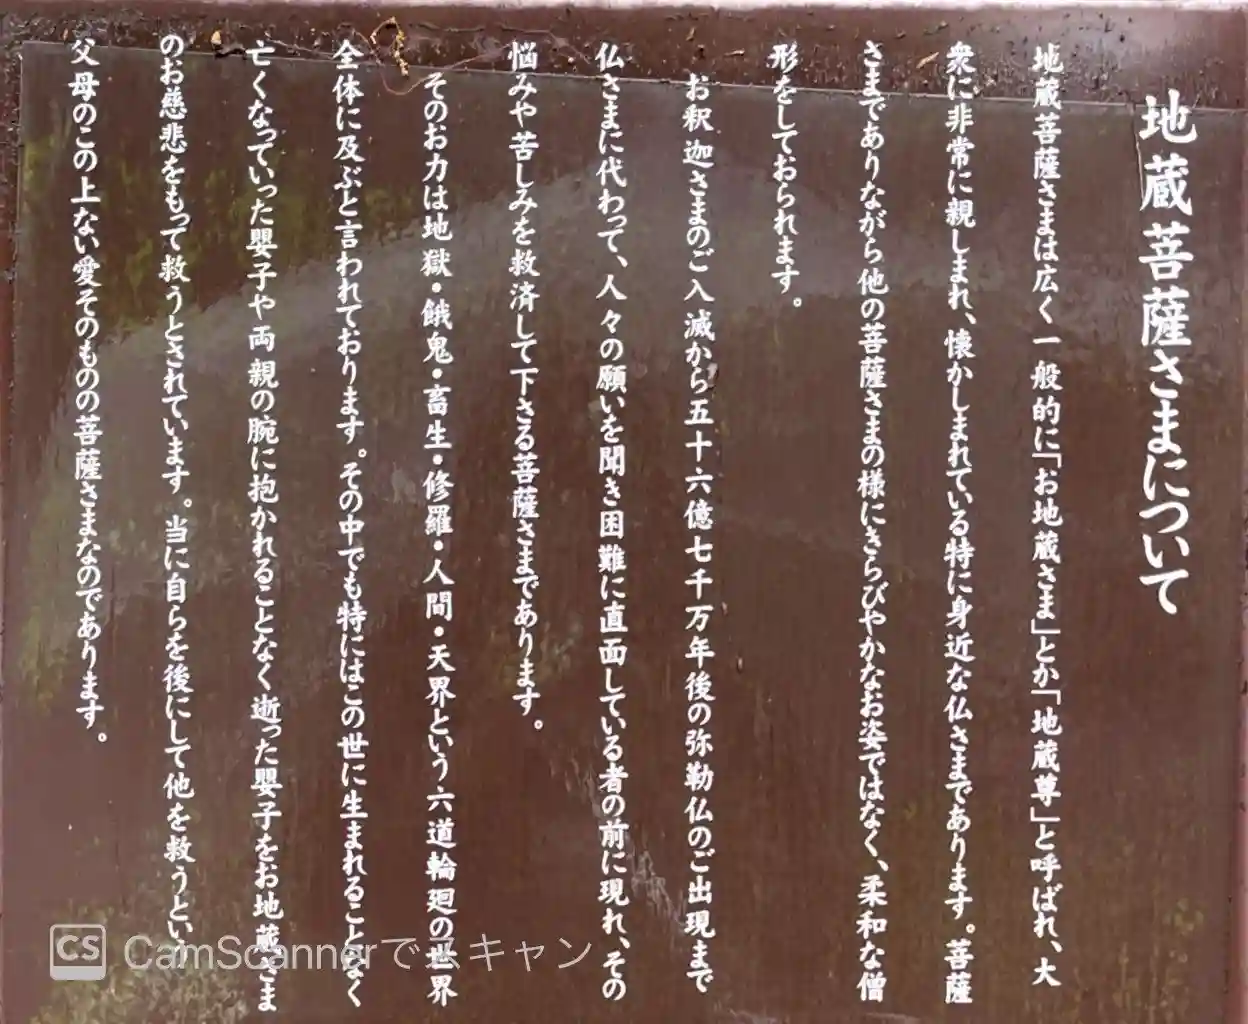 地蔵菩薩さまについて
地蔵菩薩さまは広く一般的に「お地蔵さま」とか「地蔵尊」と呼ばれ、大
衆に非常に親しまれ、懐かしまれている特に身近な仏さまであります。菩薩
さまでありながら他の菩薩さまの様にきらびやかなお姿ではなく、柔和な僧
形をしておられます。
お釈迦さまのご入滅から五十六億七千万年後の弥勒仏のご出現まで
仏さまに代わって、人々の願いを聞き困難に直面している者の前に現れ、その
悩みや苦しみを救済して下さる菩薩さまであります。
そのお力は地獄・餓鬼・畜生・修羅・人間・天界という六道輪廻の世界
全体に及ぶと言われております。その中でも特にはこの世に生まれることなく
亡くなっていった嬰子や両親の腕に抱かれることなく逝った嬰子をお地蔵さま
のお慈悲をもって救うとされています。当に自らを後にして他を救うという
父母のこの上ない愛そのものの菩薩さまなのであります。
CS CamScannerでスキャン